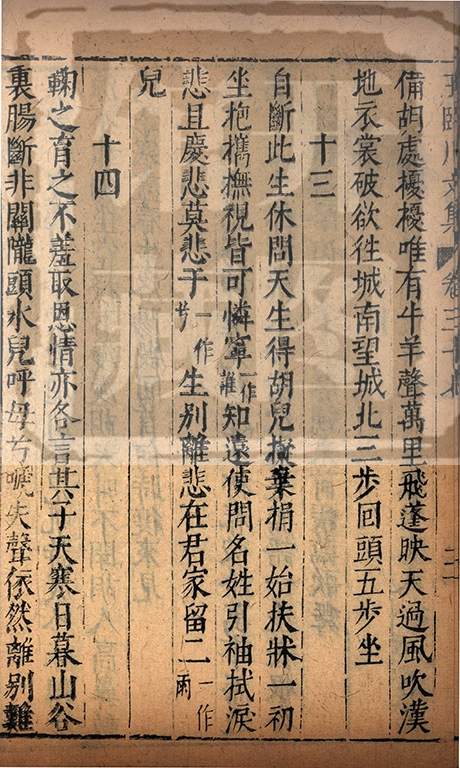 臨川文集 卷三十七 二
備胡處擾擾唯有牛羊聲萬里飛蓬映天過風吹漢
地衣裳破欲徃城南望城北三步回頭五步坐
十三
自斷此生休問天生得胡兒擬棄捐一始扶牀一初
坐抱攜撫視皆可憐寧一作誰知遠使問名姓引袖拭淚
悲且慶悲莫悲于一作兮生別離悲在君家留二一作兩
兒
十四
鞠之育之不羞恥恩情亦各言其子天寒日暮山谷
裏腸斷非關隴頭水兒呼母兮嗁失聲依然離別難